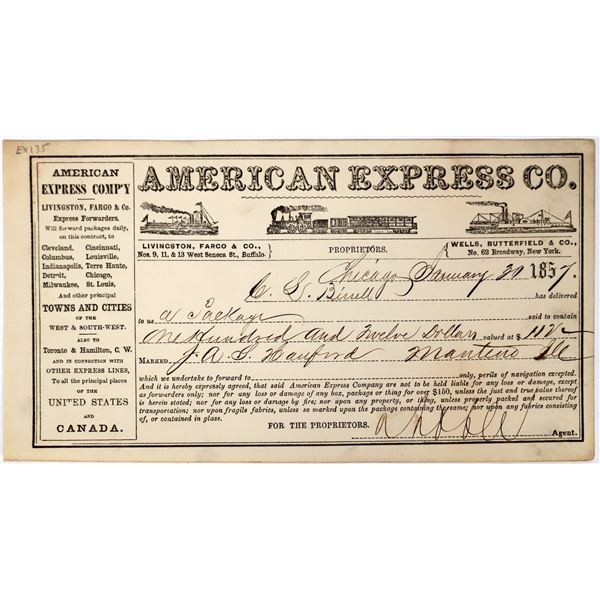 EX135
AMERICAN
EXPRESS COMP'Y
LIVINGSTON, FARGO & Co.
Express Forwarders,
Will forward packages daily,
on this contract, to
Cleveland, Cincinnati,
Columbus, Louisville,
Indianapolis, Terre Haute,
Detroit, Chicago,
Milwaukee, St. Louis,
And other principal
TOWNS AND CITIES
OF THE
WEST & SOUTH-WEST.
ALSO TO
Toronto & Hamilton, C. W.
AND IN CONNECTION WITH
OTHER EXPRESS LINES,
To all the principal places
OF THE
UNITED STATES
AND
CANADA.
AMERICAN EXPRESS CO.
LIVINGSTON, FARGO & CO.,
Nos. 9, 11, & 13 West Seneca St., Buffalo.
PROPRIETORS.
WELLS, BUTTERFIELD & CO.,
No. 62 Broadway, New York.
Chicago January 1857.
C. S. has delivered
to us a Package said to contain
One Hundred and Twelve Dollars valued at $ 112
MARKED J. A. S. Hanford Manteno Ill
which we undertake to forward to only, perils of navigation excepted.
And it is hereby expressly agreed, that said American Express Company are not to be held liable for any loss or damage, except
as forwarders only; nor for any loss or damage of any box, package or thing for over $150, unless the just and true value thereof
is herein stated; nor for any loss or damage by fire; nor upon any property or thing, unless properly packed and secured for
transportation; nor upon fragile fabrics, unless so marked upon the package containing the same; nor upon any fabrics consisting
of, or contained in glass.
FOR THE PROPRIETORS.
Agent.